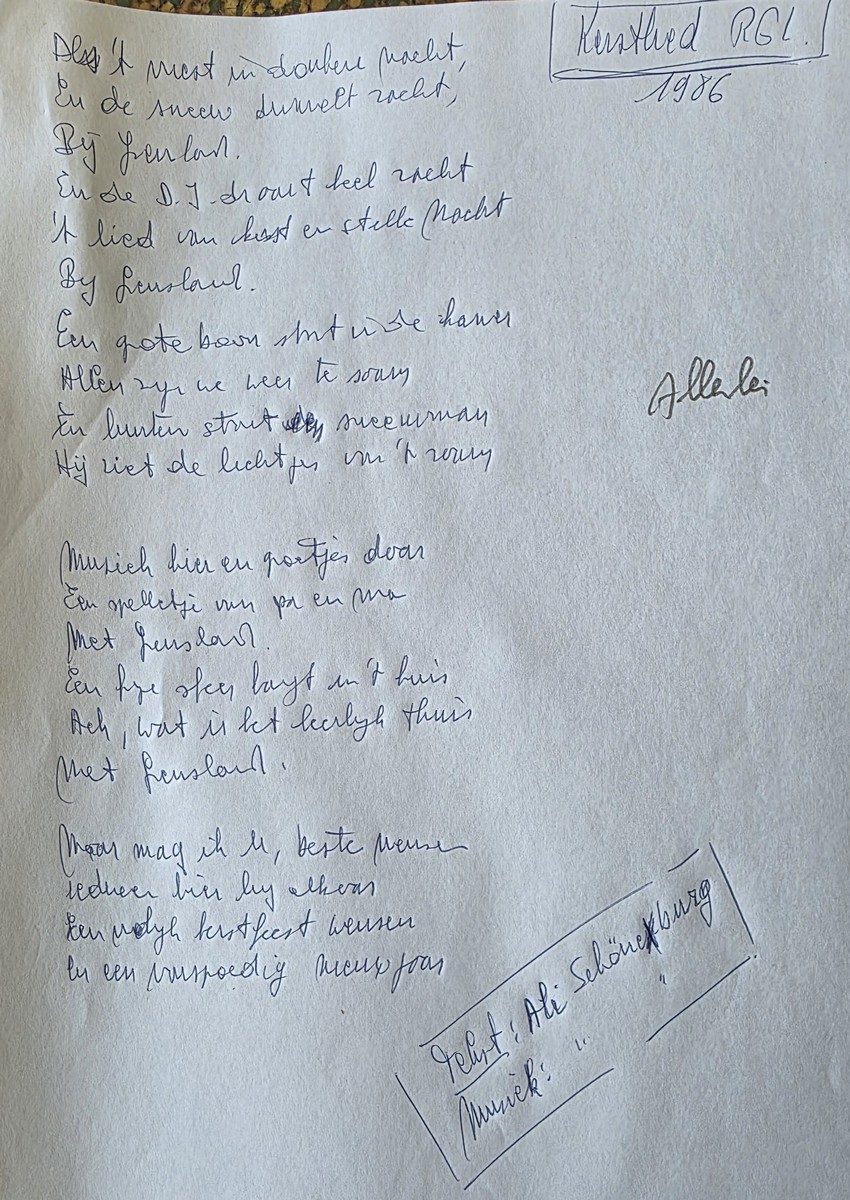 Kerstlied RGL.
1986
Als 't vriest in donkere nacht,
En de sneeuw dwarrelt zacht,
Bij Gensland.
En de D.J. draait heel zacht
't lied van kerst en stille Nacht
By Gensland.
Een grote boom staat in de kamer
Allen zyn we weer te samen
En buiten staat sneeuwman
Hij ziet de lichtjes van 't
Allerlei
Muziek hier en groetjes daar
Een spelletje van pa en ma
Met Gensland.
Een fyne sfeer hangt in 't huis
Ach, wat is het heerlyk thuis
Met Gensland.
Maar mag ik U, beste mensen
iedereen hier by elkaar
Een vrolyk kerstfeest wensen
En een voorspoedig nieuwjaar
Tekst: Ali Schönckburg
Muziek: " "